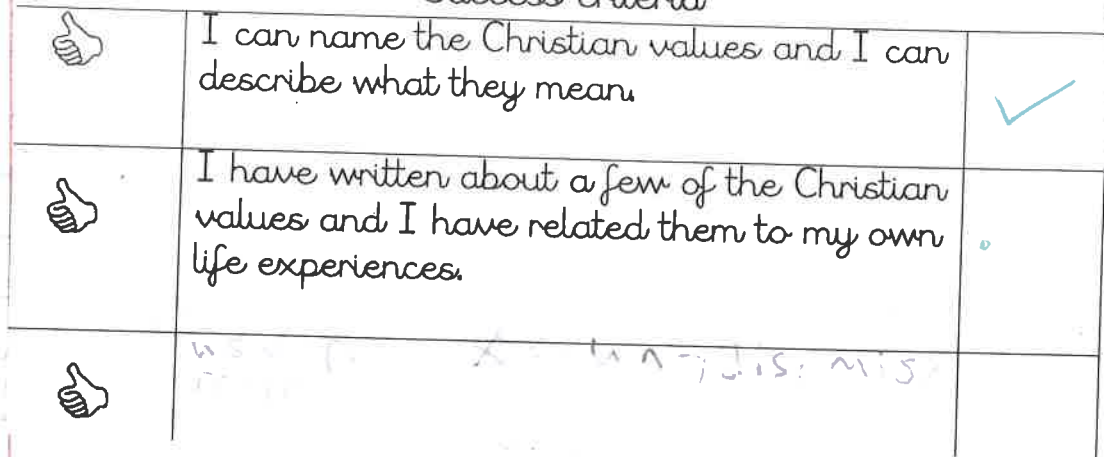 Success Criteria
I can name the Christian values and I can
describe what they mean.
I have written about a few of the Christian
values and I have related them to my own
life experiences.